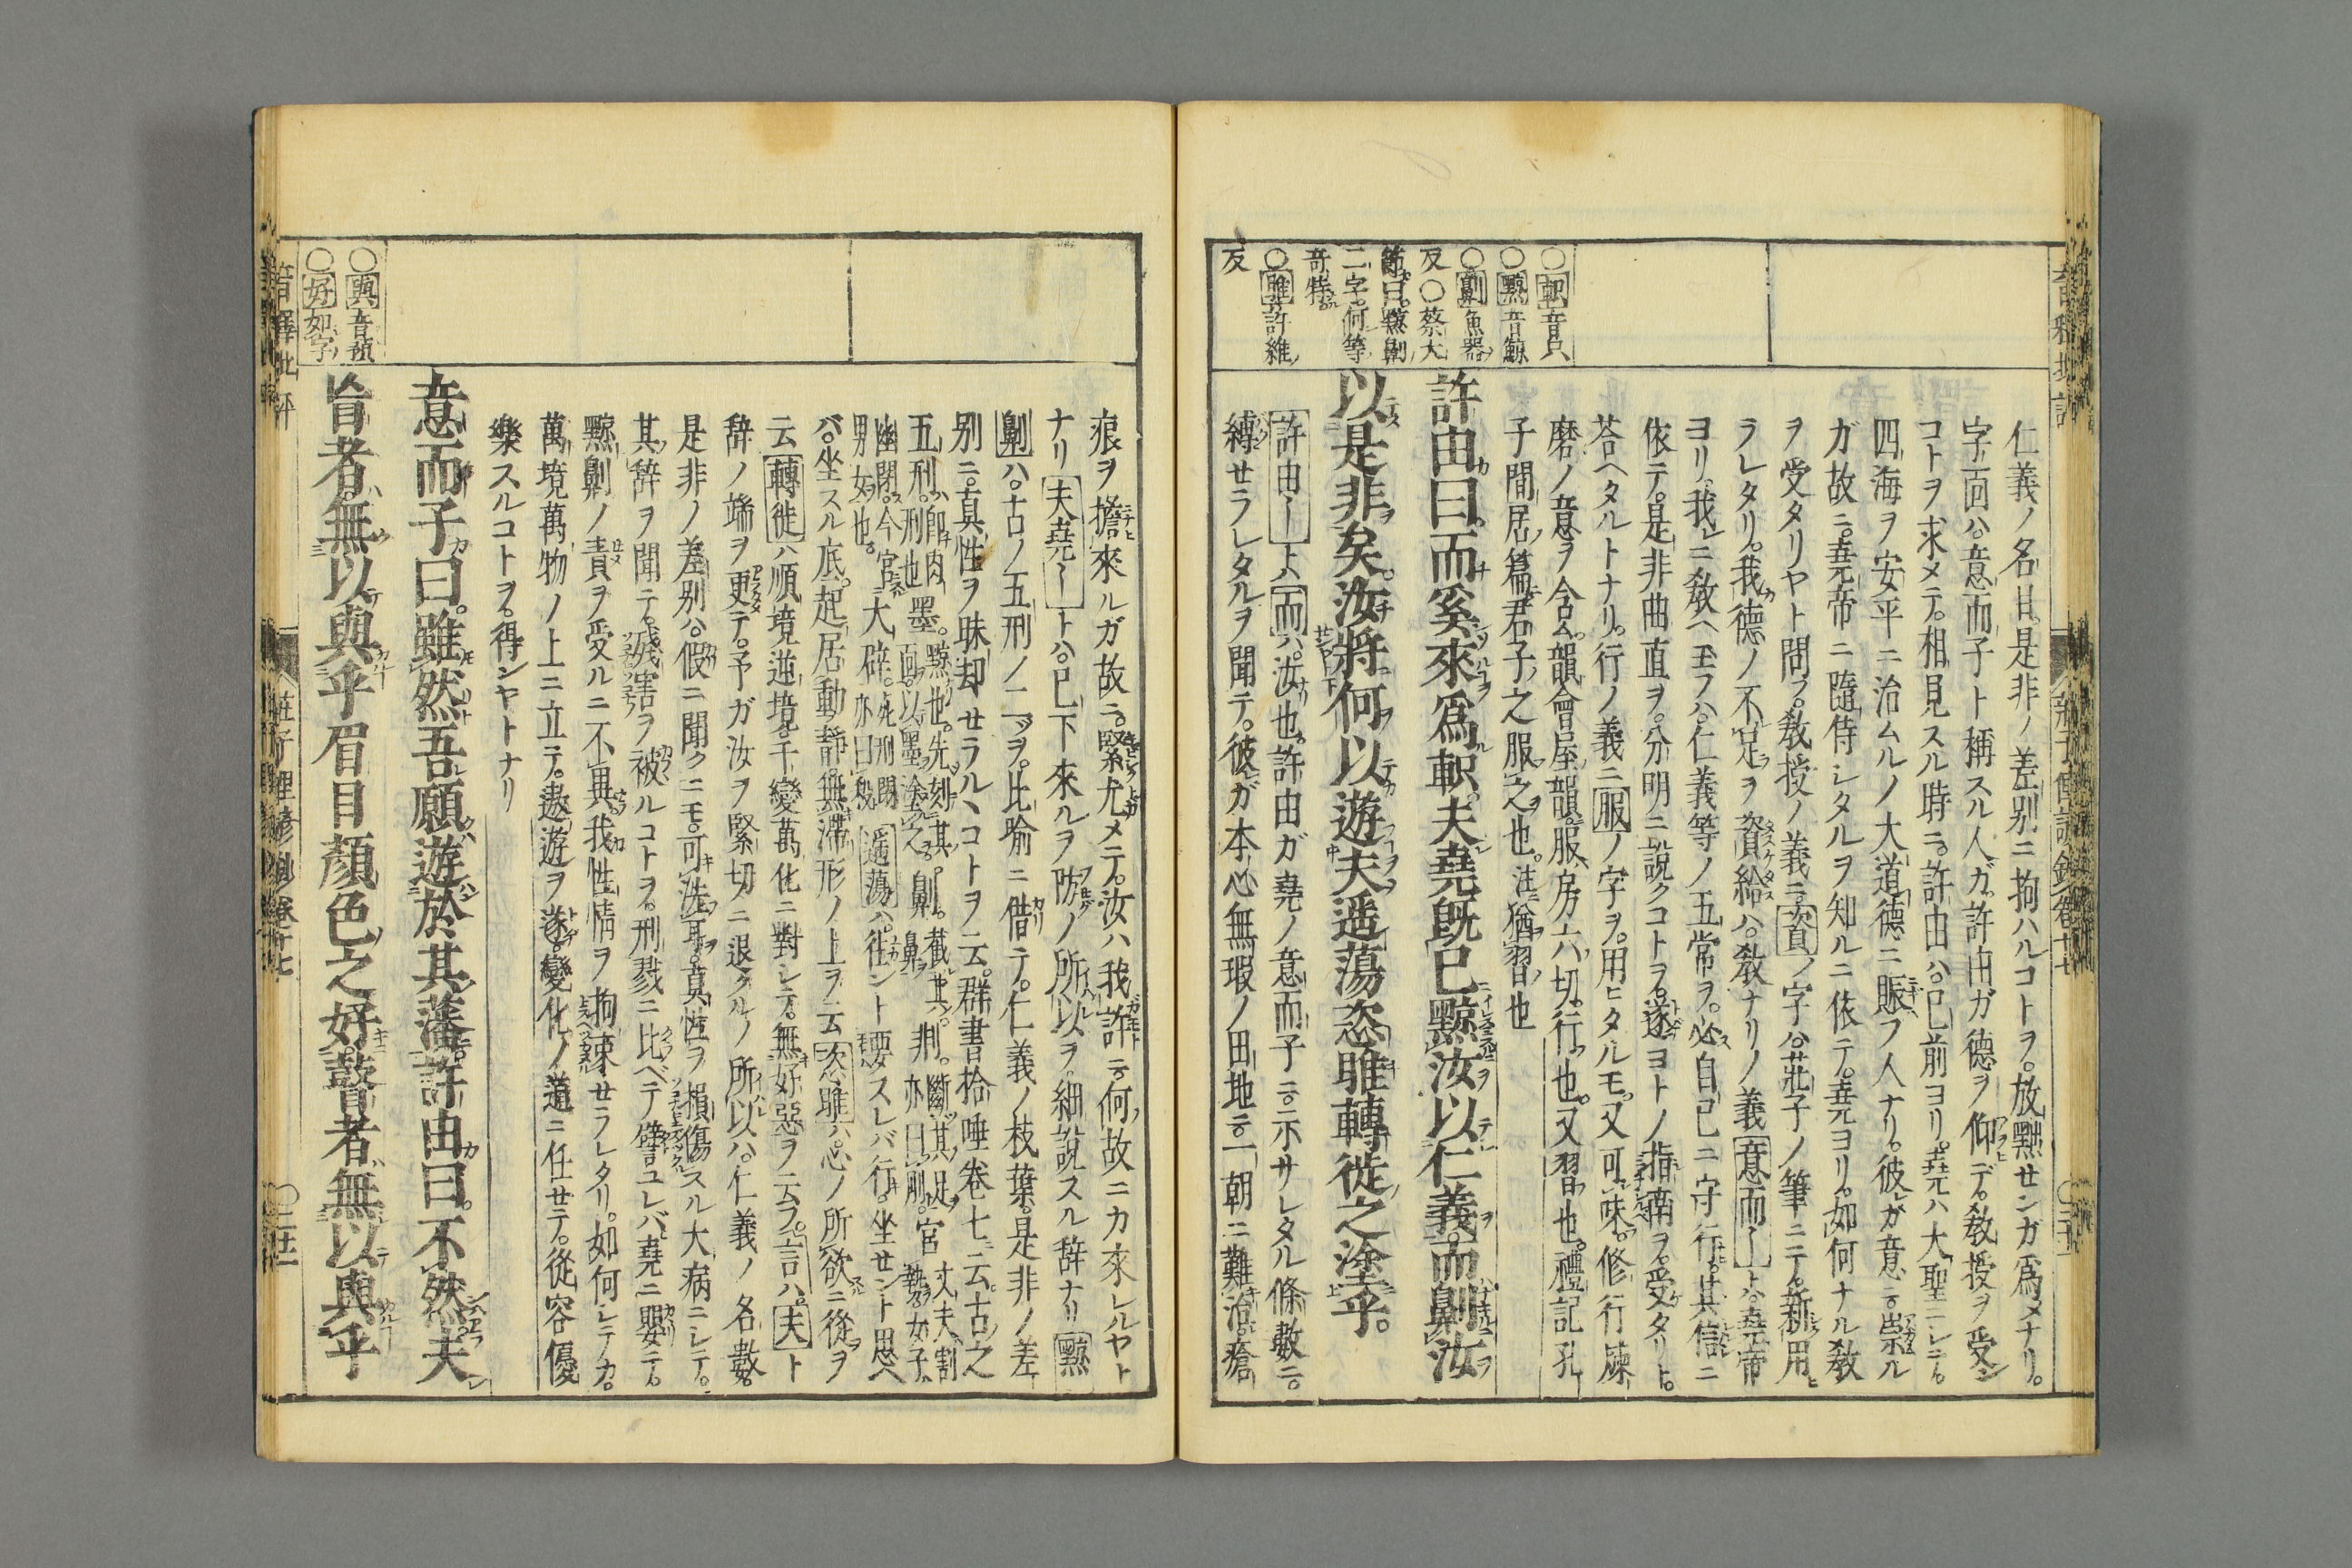 ○軹音只
○黥音鯨
○劓魚器
反○蔡大
節曰黥劓
二字何等
奇特
○睢許維
反
仁義ノ名目是非ノ差別ニ拘ハルコトヲ放黜センガ為メナリ
字面ハ意而子ト稱スル人ガ許由ガ德ヲ仰デ教授ヲ受ン
コトヲ求メテ相見スル時ニ許由ハ已前ヨリ堯ハ大聖ニシテ
四海ヲ安平ニ治ムルノ大道德ニ賑フ人ナリ彼ガ意ニ崇ル
ガ故ニ堯帝ニ隨侍シタルヲ知ルニ依テ堯ヨリ如何ナル教
ヲ受タリヤト問フ教授ノ義ニ資ノ字ハ莊子ノ筆ニテ新用
ラレタリ我德ノ不足ヲ資給ハ教ナリノ義意而ートハ堯帝
ヨリ我ニ教ヘ玉フハ仁義等ノ五常ヲ必自己ニ守行其信ニ
依テ是非曲直ヲ分明ニ說クコトヲ遂ヨトノ指南ヲ受タリト
荅ヘタルトナリ行ノ義ニ服ノ字ヲ用ヒタルモ又可味修行練
磨ノ意ヲ含ム韻會屋韻服房六切行也又習也禮記孔
子間居篇君子之服之也注猶習也
許由曰而奚來爲軹夫堯既已黥汝以仁義而劓汝
以是非矣汝將何以遊夫遥蕩恣睢轉徙之塗乎
許由ートハ而ハ汝也許由ガ堯ノ意而子ニ示サレタル條數ニ
縛セラレタルヲ聞テ彼ガ本心無瑕ノ田地ニ一朝ニ難治瘡
痕ヲ擔來ルガ故ニ緊尤メテ汝ハ我許ニ何故ニカ來レルヤト
ナリ夫堯ートハ已下來ルヲ防ノ所以ヲ細說スル辞ナリ黥
劓ハ古ノ五刑ノ二ツヲ比喻ニ借テ仁義ノ枝葉是非ノ差
别ニ真性ヲ昧却セラルヽコトヲ云群書拾唾卷七ニ云古之
五刑ハ卽肉刑也墨黥也先刻其面以墨塗之劓截其鼻剕斷其足亦曰刖宮丈夫割勢女子
幽閉今官男女也大辟死刑亦曰殺遥蕩ハ往ント要スレバ行坐セント思ヘ
バ坐スル底起居動静無滯形ノ上ヲ云恣睢ハ心ノ所欲ニ從ヲ
云轉徙ハ順境逆境千變萬化ニ對シテ無好惡ヲ云フ言ハ夫ト
辞ノ端ヲ更テ予ガ汝ヲ緊切ニ退クルノ所以ハ仁義ノ名數
是非ノ差别ハ假ニ聞クニモ可洗耳真性ヲ損傷スル大病ニシテ
其辞ヲ聞テ殘害ヲ被ルコトヲ刑戮ニ比ベテ譬ユレバ堯ニ嬰テ
黥劓ノ責ヲ受ルニ不異我性情ヲ拘束セラレタリ如何シテカ
萬境萬物ノ上ニ立テ遨遊ヲ遂變化ノ道ニ任セテ從容優
樂スルコトヲ得ンヤトナリ
意而子曰雖然吾願遊於其藩許由曰不然夫
盲者無以與乎眉目顏色之好瞽者無以與乎
○與音預
○好如字